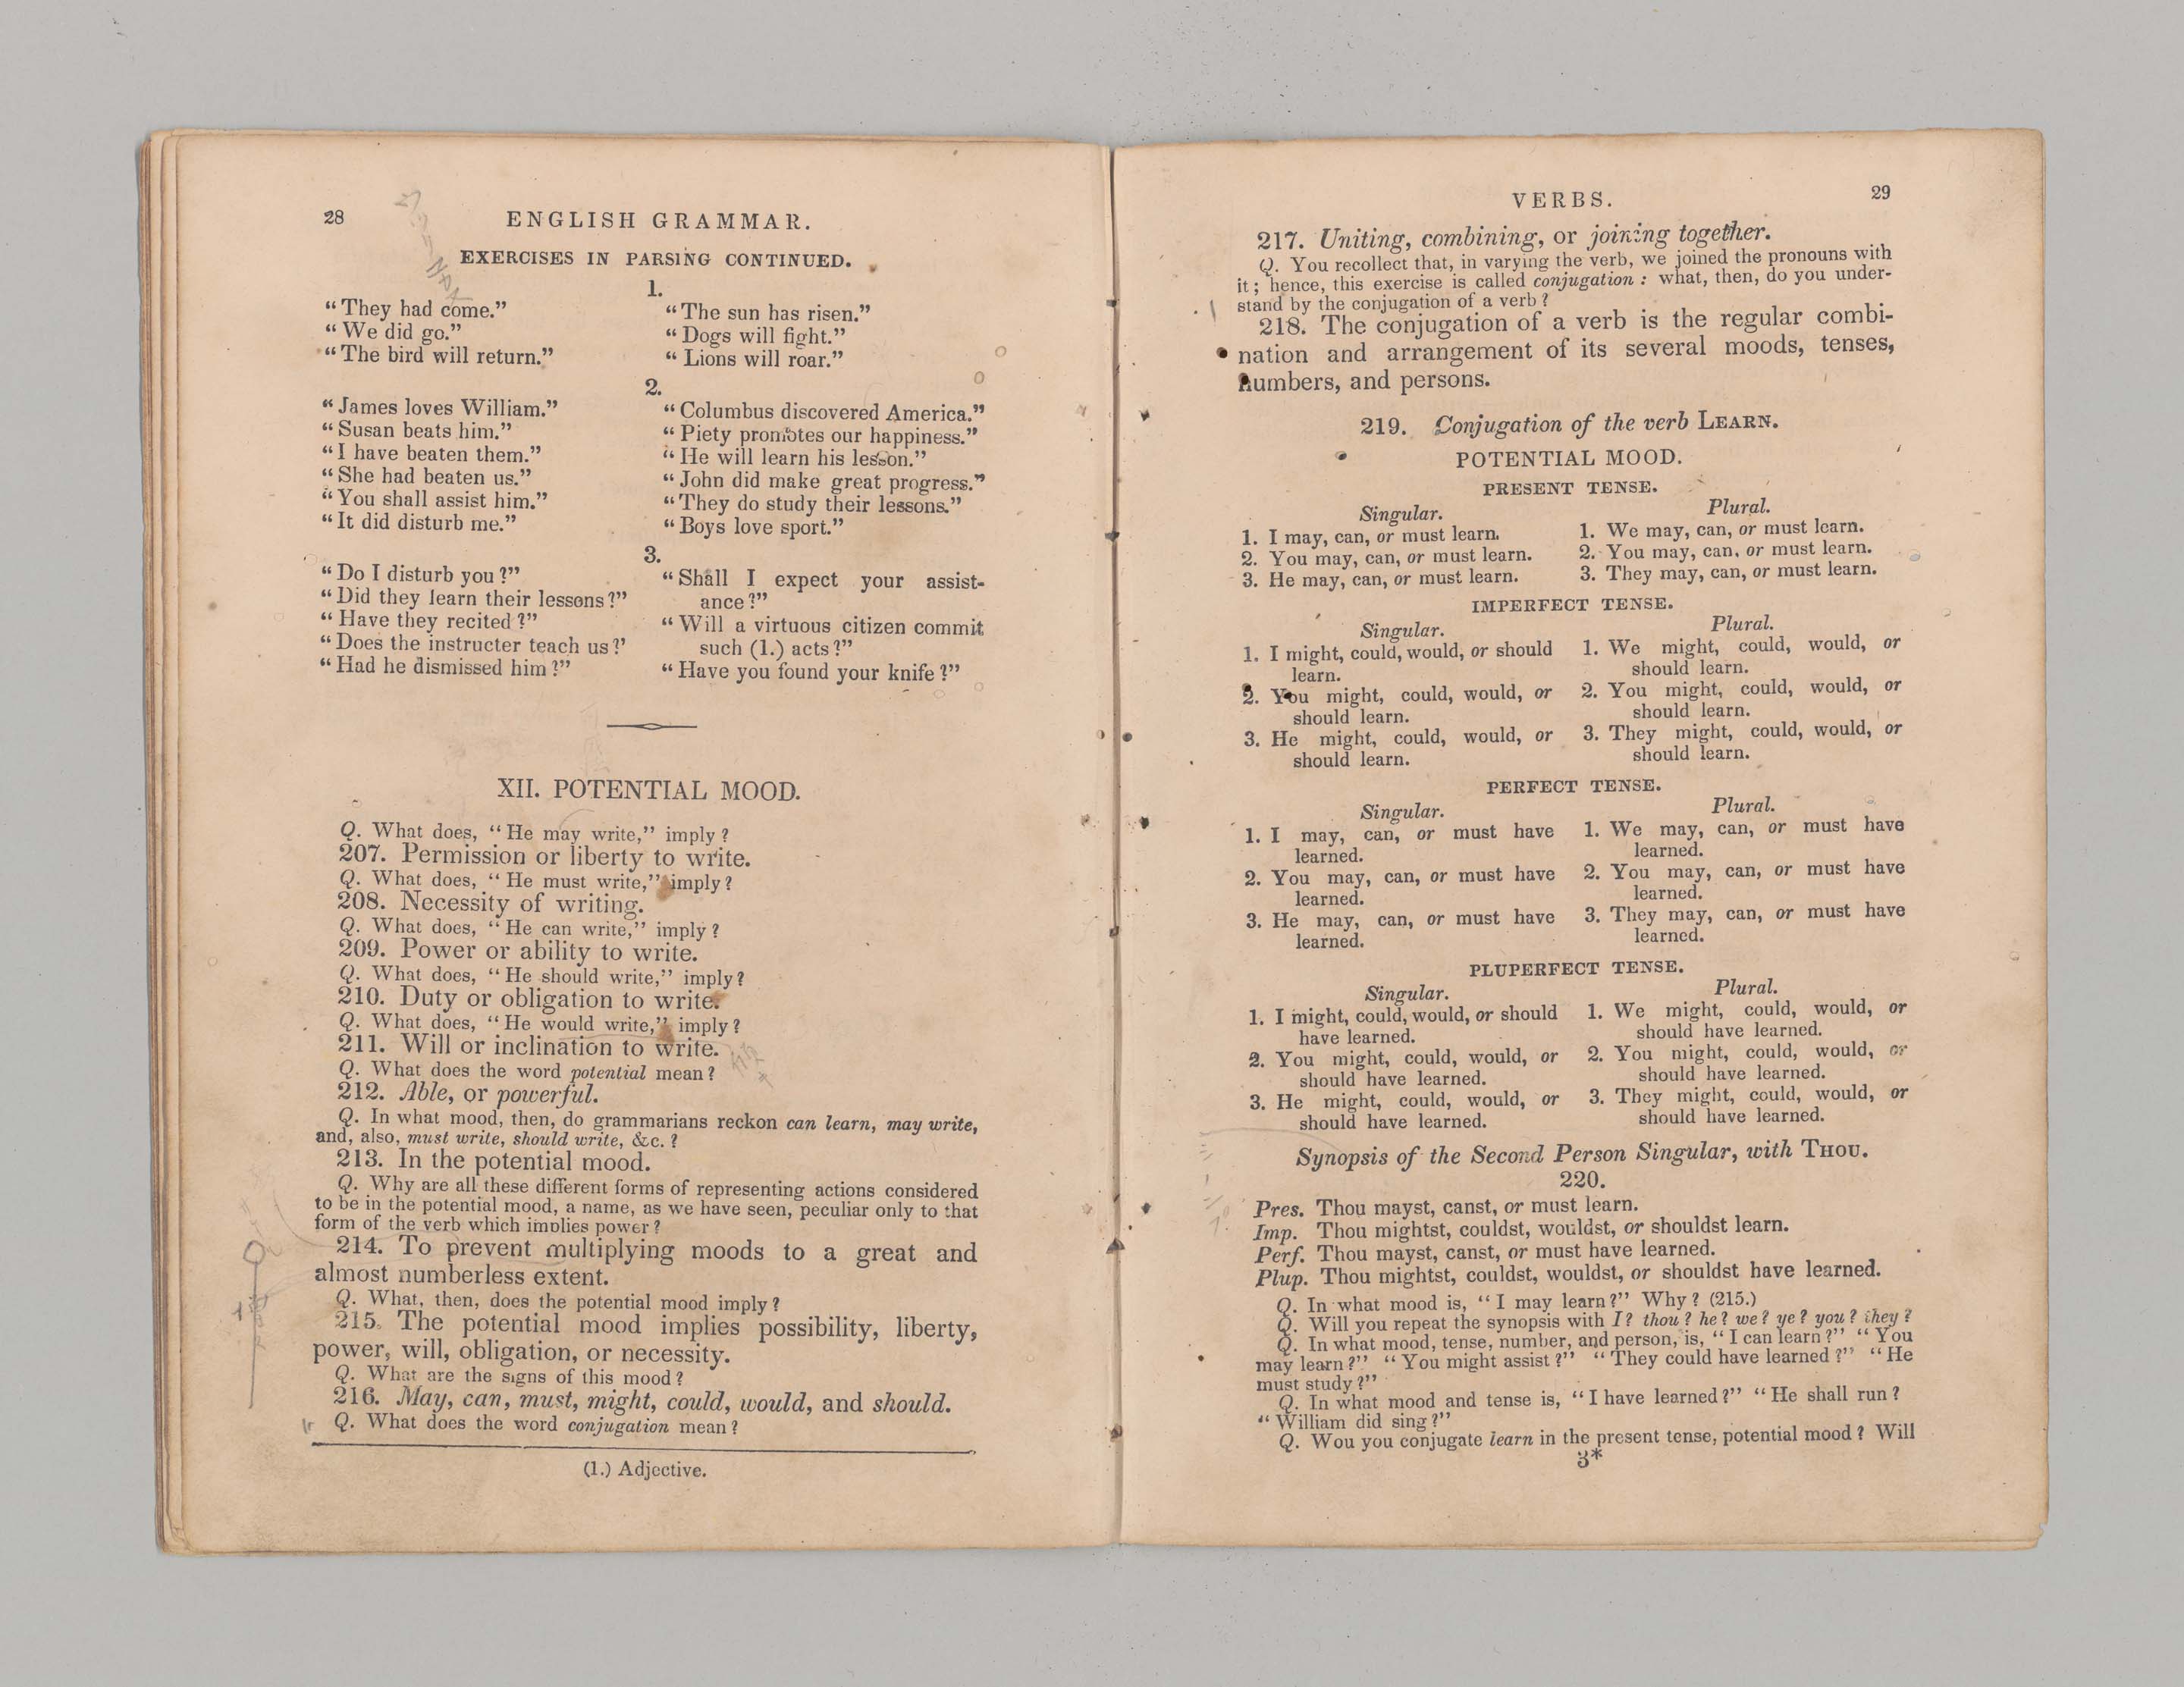 28
ENGLISH GRAMMAR.
EXERCISES IN PARSING CONTINUED.
1.
“They had come.”
“We did go.”
“The bird will return.”
“The sun has risen.”
“Dogs will fight.”
“Lions will roar.”
2.
“James loves William.”
“Susan beats him.”
“I have beaten them.”
“She had beaten us.”
“You shall assist him.”
“It did disturb me.”
“Columbus discovered America.”
“Piety promotes our happiness.”
“He will learn his lesson.”
“John did make great progress.”
“They do study their lessons.”
“Boys love sport.”
3.
“Do I disturb you?”
“Did they learn their lessons?”
“Have they recited?”
“Does the instructer teach us?’
“Had he dismissed him?”
“Shall I expect your assist-
ance?”
“Will a virtuous citizen commit
such (1.) acts?”
“Have you found your knife?”
XII. POTENTIAL MOOD.
Q. What does, “He may write,” imply?
207. Permission or liberty to write.
Q. What does, “He must write,” imply?
208. Necessity of writing.
Q. What does, “He can write,” imply?
209. Power or ability to write.
Q. What does, “He should write,” imply?
210. Duty or obligation to write.
Q. What does, “He would write,” imply?
211. Will or inclination to write.
Q. What does the word potential mean?
212. Able, or powerful.
Q. In what mood, then, do grammarians reckon can learn, may write,
and, also, must write, should write, &c.?
213. In the potential mood.
Q. Why are all these different forms of representing actions considered
to be in the potential mood, a name, as we have seen, peculiar only to that
form of the verb which implies power?
214. To prevent multiplying moods to a great and
almost numberless extent.
Q. What, then, does the potential mood imply?
215. The potential mood implies possibility, liberty,
power, will, obligation, or necessity.
Q. What are the signs of this mood?
216. May, can, must, might, could, would, and should.
Q. What does the word conjugation mean?
(1.) Adjective.
VERBS.
29
217. Uniting, combining, or joining together.
Q. You recollect that, in varying the verb, we joined the pronouns with
it; hence, this exercise is called conjugation: what, then, do you under-
stand by the conjugation of a verb?
218. The conjugation of a verb is the regular combi-
nation and arrangement of its several moods, tenses,
numbers, and persons.
219. Conjugation of the verb LEARN.
POTENTIAL MOOD.
PRESENT TENSE.
Singular.
1. I may, can, or must learn.
2. You may, can, or must learn.
3. He may, can, or must learn.
Plural.
1. We may, can, or must learn.
2. You may, can, or must learn.
3. They may, can, or must learn.
IMPERFECT TENSE.
Singular.
1. I might, could, would, or should
learn.
2. You might, could, would, or
should learn.
3. He might, could, would, or
should learn.
Plural.
1. We might, could, would, or
should learn.
2. You might, could, would, or
should learn.
3. They might, could, would, or
should learn.
PERFECT TENSE.
Singular.
1. I may, can, or must have
learned.
2. You may, can, or must have
learned.
3. He may, can, or must have
learned.
Plural.
1. We may, can, or must have
learned.
2. You may, can, or must have
learned.
3. They may, can, or must have
learned.
PLUPERFECT TENSE.
Singular.
1. I might, could, would, or should
have learned.
2. You might, could, would, or
should have learned.
3. He might, could, would, or
should have learned.
Plural.
1. We might, could, would, or
should have learned.
2. You might, could, would, or
should have learned.
3. They might, could, would, or
should have learned.
Synopsis of the Second Person Singular, with THOU.
220.
Pres. Thou mayst, canst, or must learn.
Imp. Thou mightst, couldst, wouldst, or shouldst learn.
Perf. Thou mayst, canst, or must have learned.
Plup. Thou mightst, couldst, wouldst, or shouldst have learned.
Q. In what mood is, “I may learn?” Why? (215.)
Q. Will you repeat the synopsis with I? thou? he? we? ye? you? they?
Q. In what mood, tense, number, and person, is, “I can learn?” “You
may learn?” “You might assist?” “They could have learned?” “He
must study?”
Q. In what mood and tense is, “I have learned?” “He shall run?
“William did sing?”
Q. Wou you conjugate learn in the present tense, potential mood? Will
3*